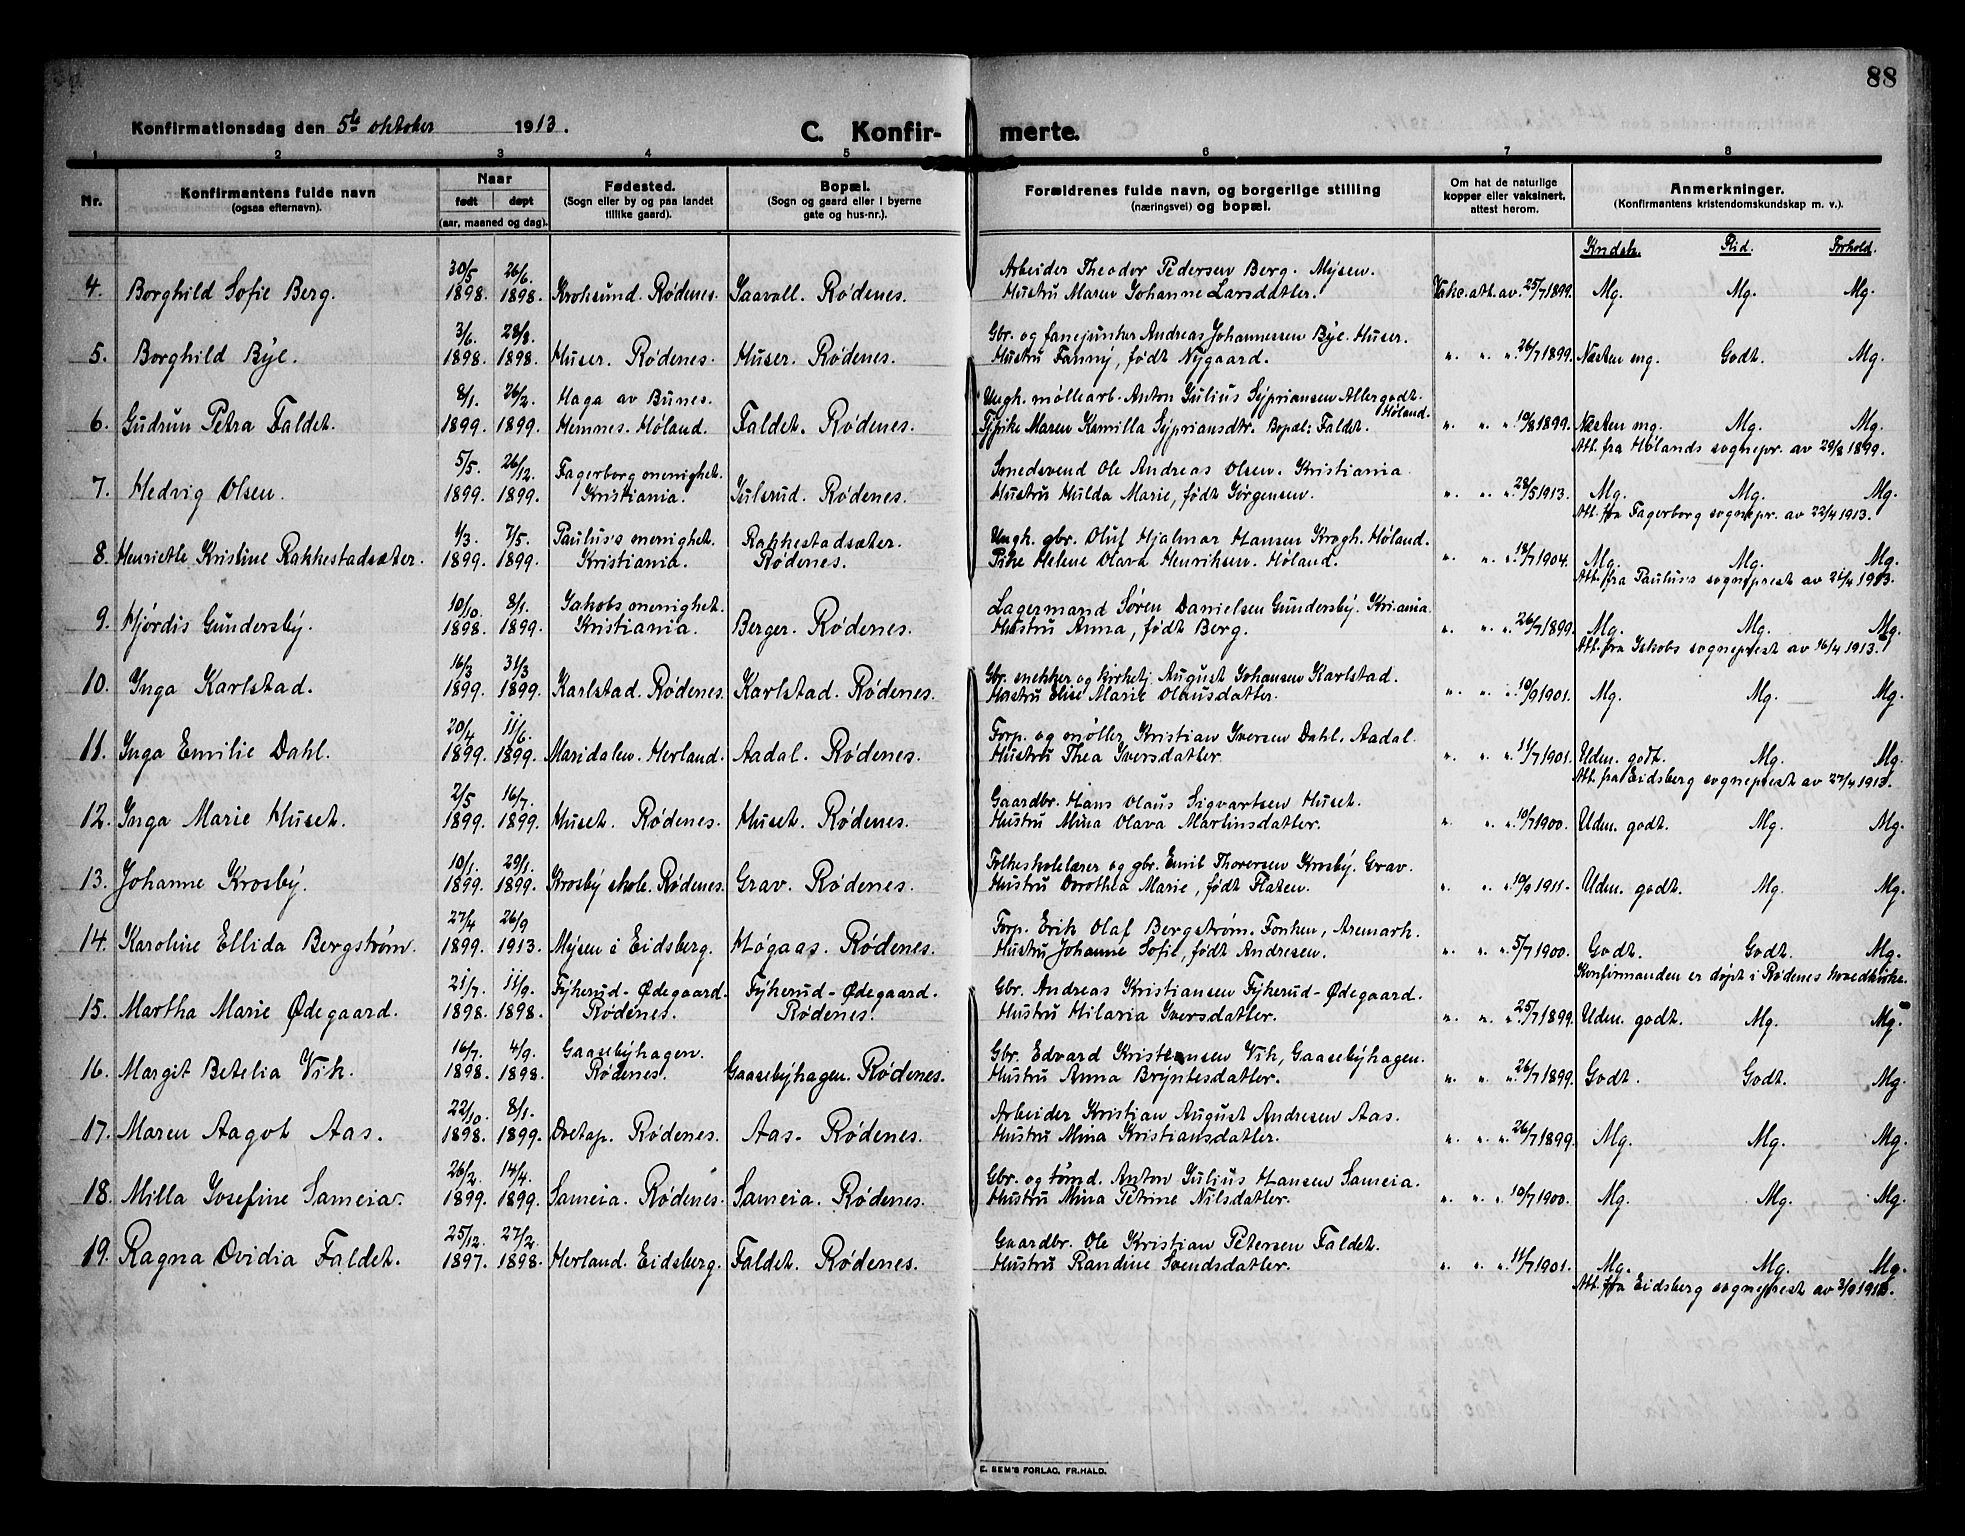 88
Konfirmationsdag den 5te oktober 1913.
C. Konfir- merte.
1 2 3 4 5 6 7 8
Nr.
Konfirmantens fulde navn
(ogsaa efternavn).
Naar
født døpt
(aar, maaned og dag).
Fødested.
(Sogn eller by og paa landet
tillike gaard).
Bopæl.
(Sogn og gaard eller i byerne
gate og hus-nr.).
Forældrenes fulde navn, og borgerlige stilling
(næringsvei) og bopæl.
Om hat de naturlige
kopper eller vaksinert,
attest herom.
Anmerkninger.
(Konfirmantens kristendomskundskap m. v.).
Kndsk. Flid. Forhold.
30/5 26/6 Arbeider Theodor Pedersen Berg. Mysen.
4. Borghild Sofie Berg. 1898. 1898. Kroksund. Rødenes. Taavoll. Rødenes. Hustru Maren Johanne Larsdatter. Vakc.att.av. 25/7 1899. Mg. Mg. Mg.
3/6 28/8. Gbr. og fanejunker Andreas Johannessen Bye. Huser.
5. Borghild Bye. 1898. 1898. Huser. Rødenes. Huser. Rødenes. Hustru Fanny, født Nygaard. " " " 26/7 1899. Næsten mg. Godt. Mg.
8/1. 26/2. Haga av Bunes. Ungk. møllearb. Anton Julius Sypriansen Allergodt.
Høland.
6. Gudrun Petra Faldet. 1899. 1899. Hemnes. Høland. Faldet. Rødenes. Pike Maren Kamilla Sypriansdtr. Bopæl: Faldet. " " " 10/8 1899. Næsten mg. Mg. Mg.
Att. fra Hølands sognepr. av 29/8 1899.
5/5. 26/12. Fagerborg menighet. Smedsvend Ole Andreas Olsen. Kristiania
7. Hedvig Olsen. 1899. 1899. Kristiania. Julsrud. Rødenes. Hustru Hulda Marie, født Jørgensen. " " " 28/5 1913. Mg. Mg. Mg.
Att. fra Fagerborg sognepr. av 22/4 1913.
4/3. 7/5. Paulus's menighet. Rakkestadsæter. Ungk. gbr. Oluf Hjalmar Hansen Krogh. Høland.
8. Henriette Kristine Rakkestadsæter. 1899. 1899. Kristiania. Rødenes. Pike Helene Olava Henriksen. Høland. " " " 18/7 1904. Mg. Mg. Mg.
Att. fra Paulus's sogneprest av 21/4 1913.
10/10 8/1. Jakobs menighet. Lagermand Søren Danielsen Gundersby. Kr.ania.
9. Hjørdis Gundersby. 1898. 1899. Kristiania. Berger. Rødenes. Hustru Anna, født Berg. " " " 26/7 1899. Mg. Mg. Mg.
Att. fra Jakobs sogneprest av 16/4 1913.
16/3 31/3 Gbr. snekker og kirketj. August Johansen Karlstad.
10. Inga Karlstad. 1899. 1899. Karlstad. Rødenes. Karlstad. Rødenes. Hustru Elise Marie Olausdatter. " " " 10/9 1901. Mg. Mg. Mg.
20/4 11/6. Forp. og møller Kristian Iversen Dahl. Aadal.
11. Inga Emilie Dahl. 1899. 1899. Maridalen. Herland. Aadal. Rødenes. Hustru Thea Iversdatter. " " " 11/7 1901. Uden. godt. Mg. Mg.
Att. fra Eidsberg sogneprest av 27/4 1913.
2/5 16/7. Gaardbr. Hans Olaus Sigvartsen Huset.
12. Inga Marie Huset. 1899. 1899. Huset. Rødenes. Huset. Rødenes. Hustru Mina Olava Martinsdatter. " " " 10/7 1900. Uden. godt. Mg. Mg.
10/1. 29/1. Folkeskolelærer og gbr. Emil Thoresen Krosby. Grav.
13. Johanne Krosby. 1899. 1899. Krosby skole. Rødenes. Grav. Rødenes. Hustru Dorothea Marie, født Flaten. " " " 10/9 1911. Uden. godt. Mg. Mg.
27/4 26/9 Forp. Erik Olaf Bergstrøm. Fonken, Aremark.
14. Karoline Ellida Bergstrøm. 1899. 1913. Mysen i Eidsberg. Høgaas. Rødenes. Hustru Johanne Sofie, født Andresen. " " " 5/7 1900. Godt. Godt. Mg.
Konfirmanden er døpt i Rødenes hovedkirke.
21/7. 11/9. Fykerud-Ødegaard. Fykerud-Ødegaard. Gbr. Andreas Kristiansen Fykerud-Ødegaard.
15. Martha Marie Ødegaard. 1898. 1898. Rødenes. Rødenes. Hustru Hilaria Iversdatter. " " " 25/7 1899. Uden. godt. Mg. Mg.
16/7. 4/9. Gaasebyhagen. Gbr. Edvard Kristensen Vik, Gaasebyhagen.
16. Margit Betelia Vik. 1898. 1898. Rødenes. Gaasebyhagen. Rødenes. Hustru Anna Bryntesdatter. " " " 26/7 1899. Godt. Godt. Mg.
22/10. 8/1. Arbeider Kristian August Andresen Aas.
17. Maren Aagot Aas. 1898. 1899. Øretap. Rødenes. Aas. Rødenes. Hustru Mina Kristiansdatter. " " " 26/7 1899. Mg. Mg. Mg.
26/2. 14/4. Gbr. og tømd. Anton Julius Hansen Sameia.
18. Milla Josefine Sameia. 1899. 1899. Sameia. Rødenes. Sameia. Rødenes. Hustru Mina Petrine Nilsdatter. " " " 10/7 1900. Mg. Mg. Mg.
25/12. 27/2. Gaardbr. Ole Kristian Petersen Faldet.
19. Ragna Ovidia Faldet. 1897. 1898. Herland. Eidsberg. Faldet. Rødenes. Hustru Randine Svendsdatter. " " " 11/7 1901. Mg. Mg. Mg.
Att. fra Eidsberg sogneprest av 3/9 1913.
E. SEM'S FORLAG, FR.HALD.